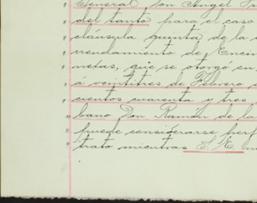 General, Don Angel
del tanto para el caso
cláusula quinta de la
rrendamiento de Encin
metas, que se otorgó en
á veintitres de Febrero
cientos cuarenta y tres
bano Don Ramón de la
puede considerarse perf
trato mientras S. M.